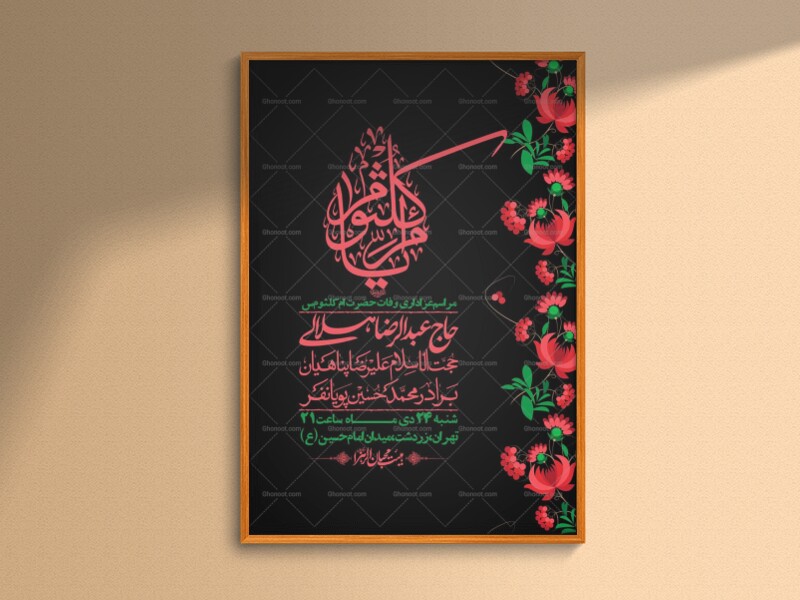 یا ام کلثوم
مراسم عزاداری وفات حضرت ام کلثوم س
حاج عبدالرضا هلالی
حجت الاسلام علیرضا پناهیان
برادر محمدحسین پویانفر
شنبه ۲۴ دی مـاه ساعت ۲۱
تهران، زردشت، میدان امام حسین (ع)
هیئت محبان الزهرا
Ghonoot.com